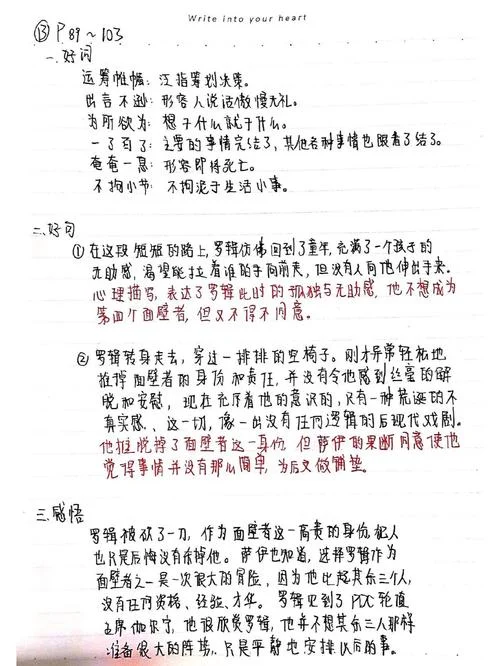 Write into your heart
⑬ P89~103
一.好词
运筹帷幄: 泛指筹划决策。
出言不逊: 形容人说话傲慢无礼。
为所欲为: 想干什么就干什么。
一了百了: 主要的事情完结了,其他各种事情也跟着了结了。
奄奄一息: 形容即将死亡。
不拘小节: 不拘泥于生活小事。
二.好句
①在这段短短的路上,罗辑仿佛回到了童年,充满了一个孩子的
无助感,渴望能拉着谁的手向前走,但没有人向他伸出手来。
心理描写,表达了罗辑此时的孤独与无助感,他不想成为
第四个面壁者,但又不得不同意。
②罗辑转身走去,穿过一排排的空椅子。刚才异常轻松地
推掉面壁者的身份和责任,并没有令他感到丝毫的解
脱和安慰,现在充斥着他的意识的,只有一种荒诞的不
真实感、这一切,像一出没有任何逻辑的后现代戏剧。
他推脱掉了面壁者这一身份,但萨伊的果断同意使他
觉得事情并没有那么简单,为后文做铺垫。
三.感悟
罗辑被砍了一刀,作为面壁者这一高贵的身份,犯人
也只是后悔没有杀掉他。萨伊也知道,选择罗辑作为
面壁者之一是一次很大的冒险,因为他比起其余三个人,
没有任何资格、经验、才华。罗辑见到了PDC轮值
主席伽尔宁,他很欣赏罗辑,他并不想其余三人那样
准备很大的阵势,只是平静地安排以后的事。